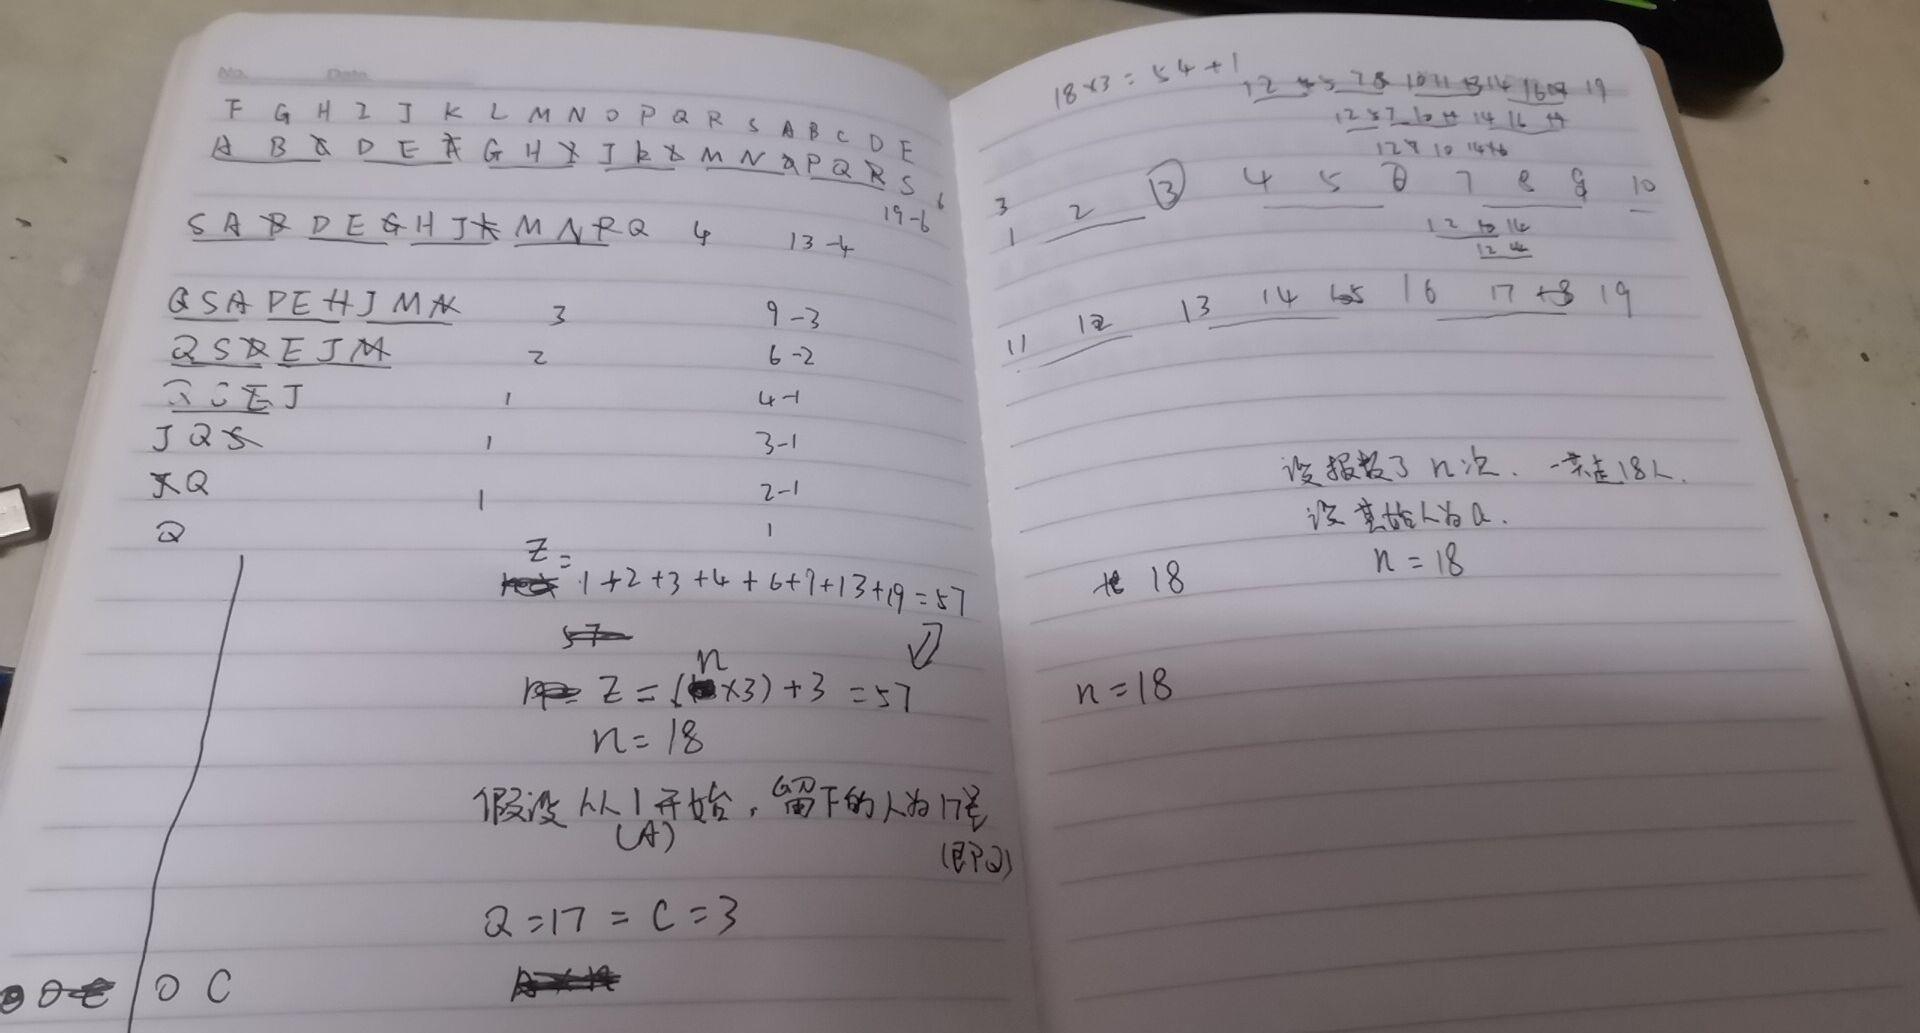 No. Date
F G H I J K L M N O P Q R S A B C D E
A B C D E F G H I J K L M N O P Q R S 6
19-6
S A B D E G H J K M N P Q 4 13-4
Q S A D E H J M N 3 9-3
Q S D E J M 2 6-2
Q S E J 1 4-1
J Q S 1 3-1
J Q 1 2-1
Q 1
Z =
1+2+3+4+6+9+13+19=57
57
n
Z = ( ×3)+3 =57
n=18
假设从1开始,留下的人为17号
(A) (即Q)
Q=17 = C=3
O C
18×3=54+1
12 45 78 10 11 13 14 16 17 19
10 14 16
12 7 10 14 16
3 1 2 3 4 5 6 7 8 9 10
12 10 14
12 14
11 12 13 14 15 16 17 18 19
设报数了n次. 一共走18人.
设其始人为a.
18 n=18
n=18